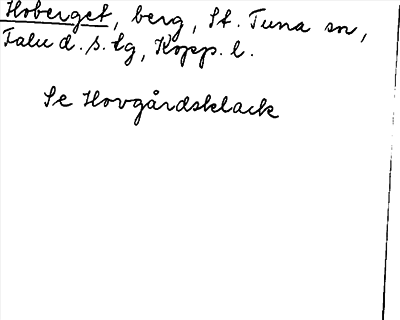 Hoberget, berg, St. Tuna sn,
Falu d. s. tg, Kopp. l.
Se Hovgårdsklack